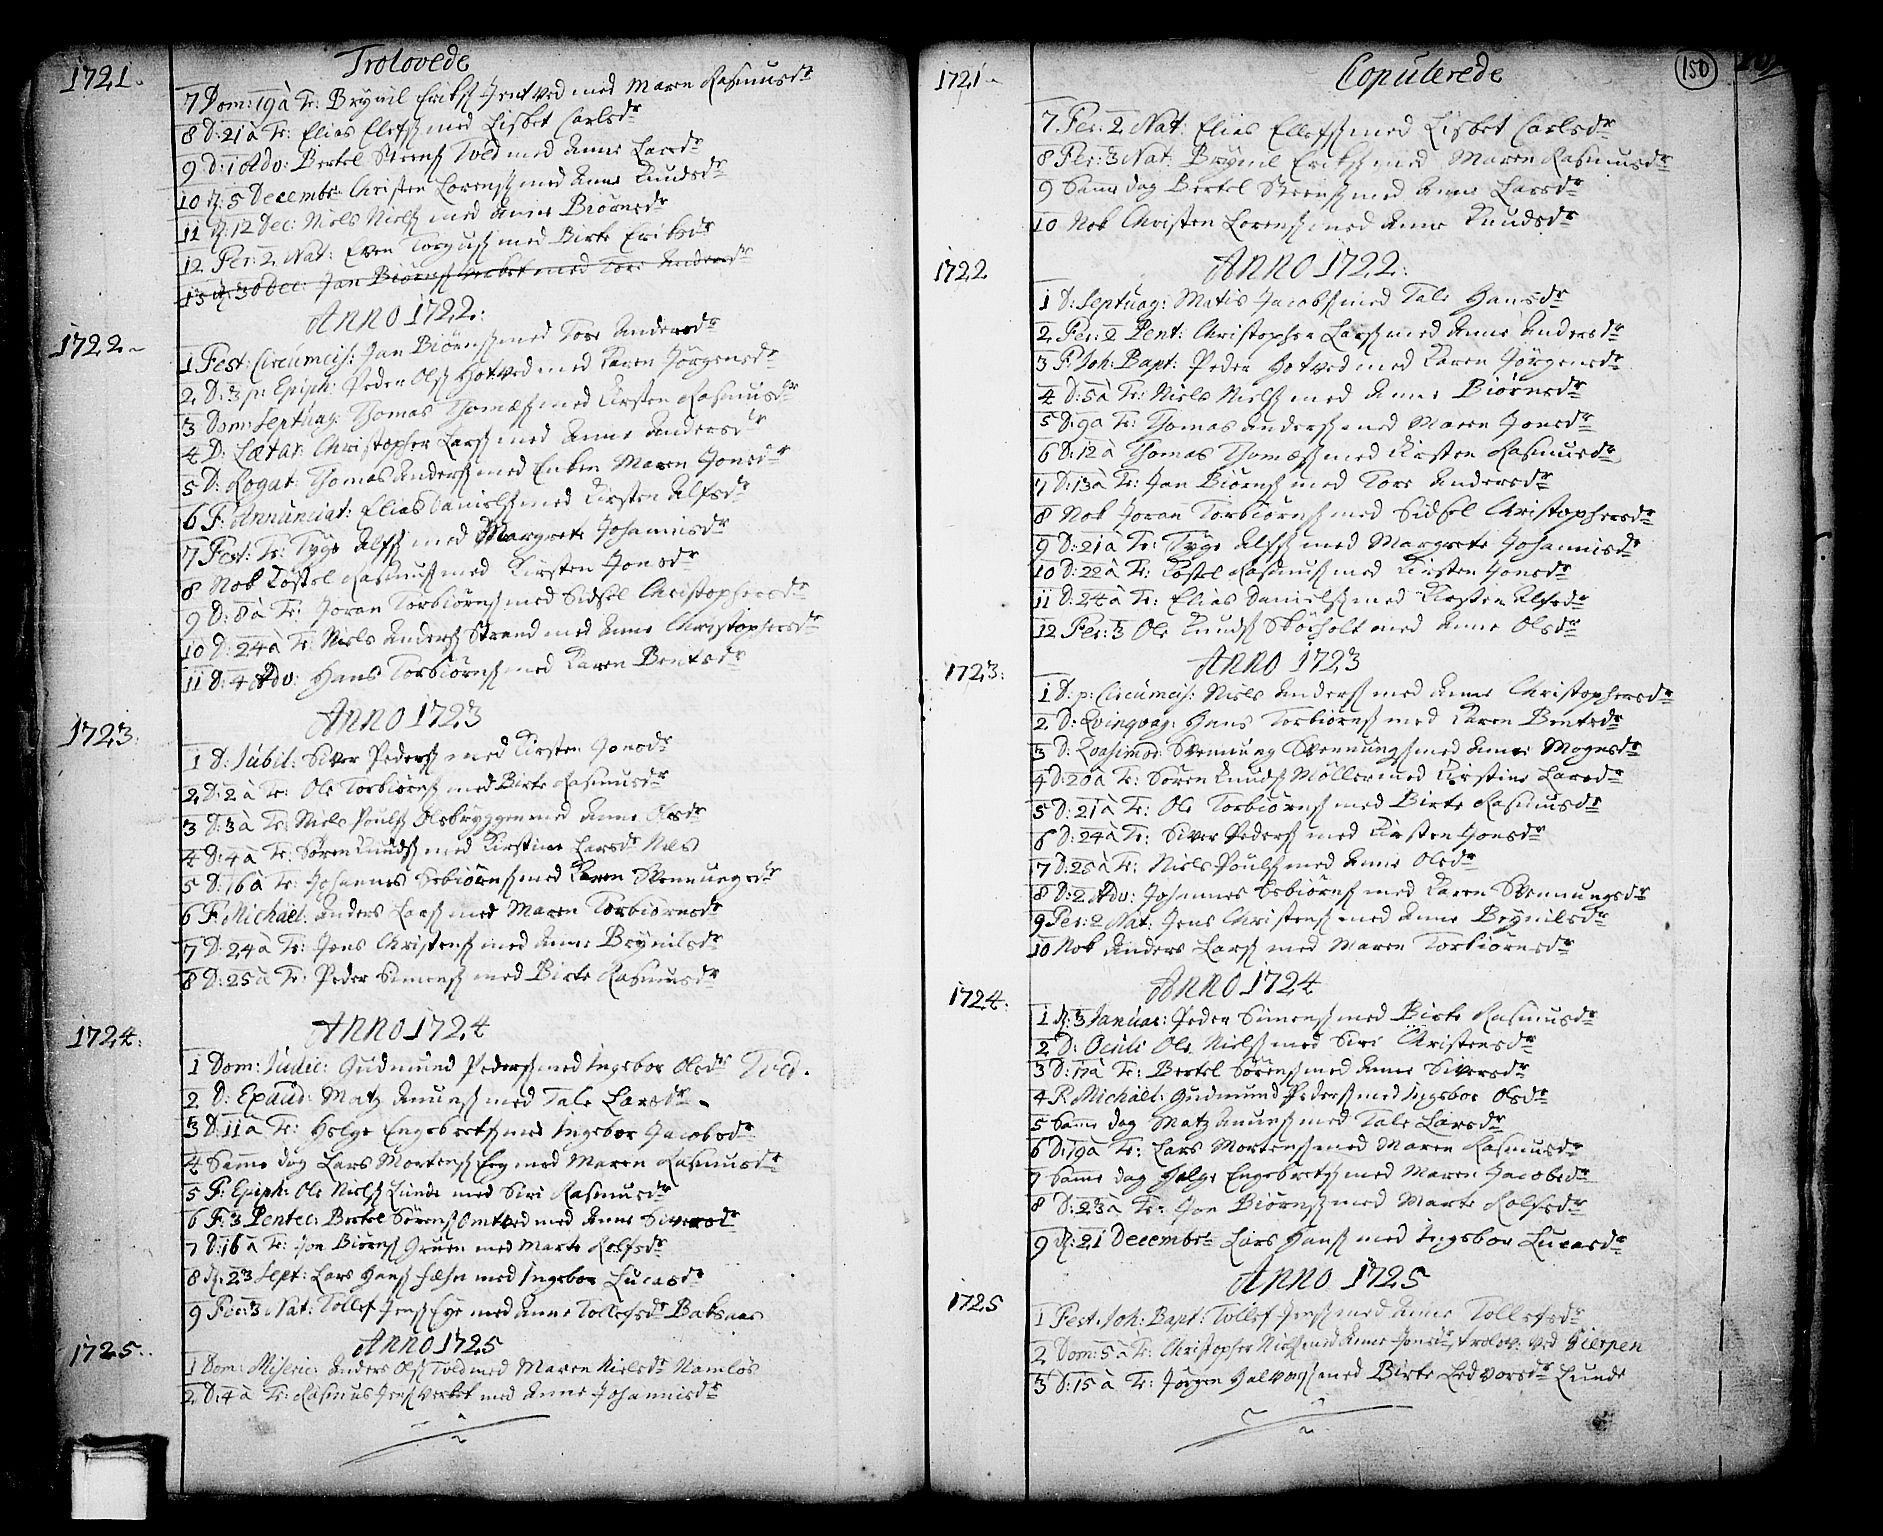 Trolovede
1721.
7 Dom: 19 à Tr: Brynil Eriks. Jentved med Maren Rasmusdr
8 D: 21 à Tr: Elias Elefs. med Lisbet Carlsdr
9 D: 1 Adv: Bertel Steens. Tvед med Anne Larsdr
10 d. 5 Decembr Christen Lorens. med Anne Knudsdr
11 d. 12 Dec: Niels Niels. med Anne Biörnsdr
12 Fer: 2 Nat: Even Torgus. med Birte Eriksdr
13 d. 30 Dec: Jan Biörns. med Tore Andersdr
ANNO 1722.
1722
1 Fest: Circumcis: Jan Biörns. med Tore Andersdr
2 D: 3 p: Epiph: Peder Ols. Hotved med Karen Jörgensdr
3 Dom: Septuag: Thomas Thomæs. med Kirsten Rasmusdr
4 D: Lætar: Christopher Lars. med Anne Andersdr
5 D: Rogat: Thomas Anders. med Enken Maren Jonsdr
6 F: Annunciat: Elias Daniels. med Kirsten Alfsdr
7 Fest: Tr: Tyge Alfs. med Margrete Johannisdr
8 Nok Köstel Rasmus. med Kirsten Jonsdr
9 D: 8 à Tr: Joran Torbiörns. med Sidsel Christophersdr
10 D: 24 à Tr: Niels Anders. Strand med Anne Christophersdr
11 D: 4 Adv: Hans Torbiörns. med Karen Bentsdr
ANNO 1723
1723.
1 D: Jubil: Siver Peders. med Kirsten Jonsdr
2 D: 2 à Tr: Ole Torbiörns. med Birte Rasmusdr
3 D: 3 à Tr: Niels Pouls. Olsbryggen med Anne Olsdr
4 D: 4 à Tr: Sören Knuds. med Kirstine Larsdr Nes
5 D: 16 à Tr: Johannes Esbiörns. med Karen Svennungsdr
6 F: Michaël: Anders Lars. med Maren Torbiörnsdr
7 D: 24 à Tr: Jens Christens. med Anne Brynilsdr
8 D: 25 à Tr: Peder Simens. med Birte Rasmusdr
ANNO 1724
1724.
1 Dom: Judic: Gudmund Peders. med Ingebor Olsdr Tved.
2 D: Exaud: Matz Amuns. med Tale Larsdr
3 D: 11 à Tr: Helge Engebrets. med Ingebor Jacobsdr
4 Samme dag Lars Mortens. med Maren Rasmusdr
5 F: Epiph: Ole Niels. Lunde med Siri Rasmusdr
6 F: 3 Pentec: Bertel Sörens. Omtved med Anne Siversdr
7 D: 16 à Tr: Jon Biörns. Gruen med Marte Rolfsdr
8 d. 23 Sept: Lars Hans. med Ingebor Lucasdr
9 Fer: 3 Nat: Tollef Jens. Eye med Anne Tollefsdr Baksaas
ANNO 1725
1725.
1 Dom: Miseric: Anders Ols. Tved med Maren Nielsdr Namlös
2 D: 4 à Tr: Rasmus Jens. med Anne Johannisdr
Copulerede
150
1721
7 Fer: 2 Nat: Elias Ellefs. med Lisbet Carlsdr
8 Fer: 3 Nat: Brynil Eriks. med Maren Rasmusdr
9 Samme dag Bertel Steens. med Anne Larsdr
10 Nok Christen Lorens. med Anne Knudsdr
1722
ANNO 1722.
1 D: Septuag: Matis Jacobs. med Tale Hansdr
2 Fer: 2 Pent: Christopher Lars. med Anne Andersdr
3 F: Joh: Bapt: Peder Hotved med Karen Jörgensdr
4 D: 5 à Tr: Niels Niels. med Anne Biörnsdr
5 D: 9 à Tr: Thomas Anders. med Maren Jonsdr
6 D: 12 à Thomas Thomæs. med Kirsten Rasmusdr
7 D: 13 à Tr: Jan Biörns. med Tore Andersdr
8 Nok Joran Torbiörns. med Sidsel Christophersdr
9 D: 21 à Tr: Tyge Alfs. med Margrete Johannisdr
10 D: 22 à Tr: Köstel Rasmus. med Kirsten Jonsdr
11 D: 24 à Tr: Elias Daniels. med Kirsten Alfsdr
12 Fer: 3 Ole Knuds. Skörholt med Anne Olsdr
1723.
ANNO 1723
1 D: p: Circumcis: Niels Anders. med Anne Christophersdr
2 D: Qvinqvag: Hans Torbiörns. med Karen Bentsdr
3 D: Qvasimod: Svennung Svennungs. med Anne Mognsdr
4 D: 20 à Tr: Sören Knuds. Möller med Kirstine Larsdr
5 D: 21 à Tr: Ole Torbiörns. med Birte Rasmusdr
6 D: 24 à Tr: Siver Peders. med Kirsten Jonsdr
7 D: 25 à Tr: Niels Pouls. med Anne Olsdr
8 D: 2 Adv: Johannes Esbiörns. med Karen Svennungsdr
9 Fer: 2 Nat: Jens Christens. med Anne Brynilsdr
10 Nok Anders Lars. med Maren Torbiörnsdr
1724.
ANNO 1724
1 d. 3 Januar: Peder Simens. med Birte Rasmusdr
2 D: Oculi Ole Niels. med Siri Christensdr
3 D: 17 à Tr: Bertel Sörens. med Anne Siversdr
4 F. Michaël: Gudmund Peders. med Ingebor Olsdr
5 Samme dag Matz Amuns. med Tale Larsdr
6 D: 19 à Tr: Lars Mortens. med Maren Rasmusdr
7 Samme dag Helge Engebrets. med Maren Jacobsdr
8 D: 23 à Tr: Jon Biörns. med Marte Rolfsdr
9 d. 21 Decembr Lars Hans. med Ingebor Lucasdr
ANNO 1725
1725
1 Fest. Joh: Bapt: Tollef Jens. med Anne Tollefsdr
2 Dom: 5 à Tr: Christopher Niels. med Anne Jonsdr trolov: ved Gierpen
3 D: 15 à Tr: Jörgen Halvors. med Birte Ledvorsdr Lunde